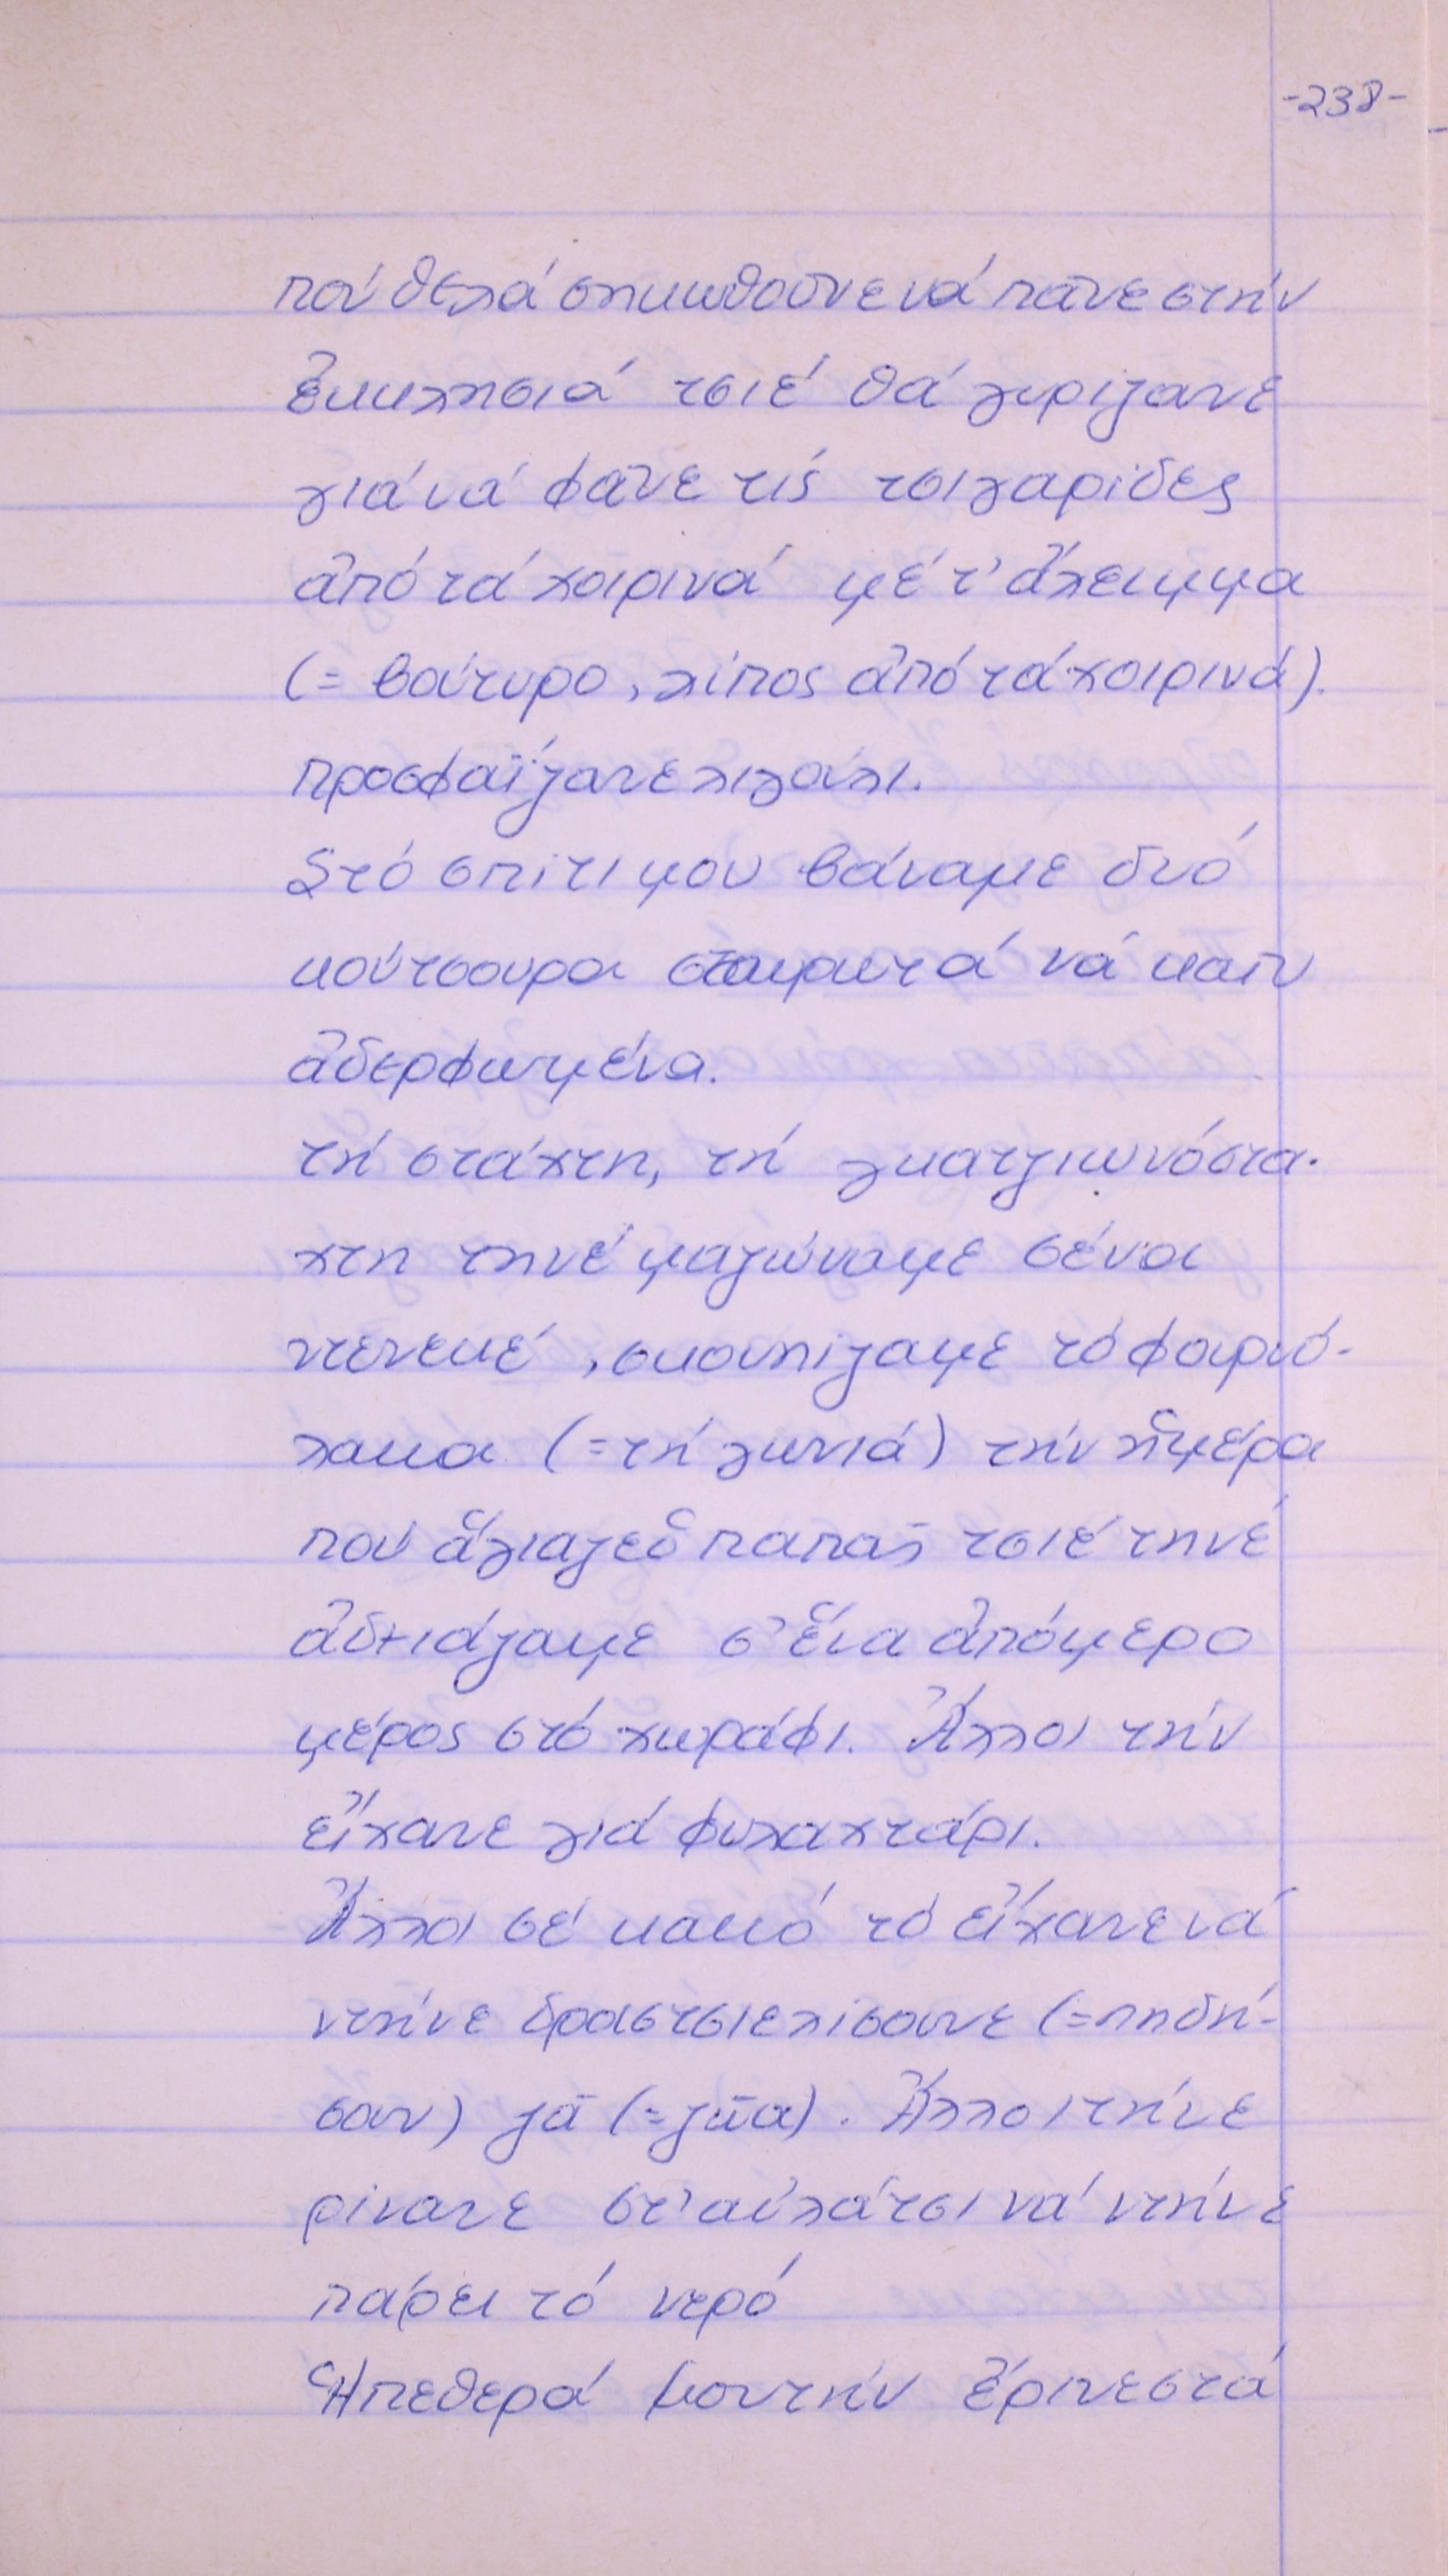 -238-
πού θελά σηκωθοῦνε νά πᾶνε στήν
ἐκκλησιά τσιέ θά γυρίζανε
γιά νά φᾶνε τίς τσιγαρίδες
ἀπό τά χοιρινά μέ τ' ἄλειμμα
(= βούτυρο, λίπος ἀπό τά χοιρινά).
προσφαΐζανε λιγάκι.
Στό σπίτι μου βάναμε δυό
κούτσουρα σταυρωτά νά καίν
ἀδερφωμένα.
τή στάχτη, τή γκατζιωνόστα-
χτη τηνέ μαζώναμε σένα
ντενεκέ, σκουπίζαμε τό φουρνό-
λακα (=τή γωνιά) τήν ἡμέρα
πού ἅγιαζε ὁ παπᾶς τσιέ τηνέ
ἀδειάζαμε σ' ἕνα ἀπόμερο
μέρος στό χωράφι. Ἄλλοι τήν
εἴχανε γιά φυλαχτάρι.
Ἄλλοι σέ κακό τό εἴχανε νά
ντήνε δρασ̔τσιελίσουνε (=πηδή-
σουν) ζᾶ (=ζῶα). Ἄλλοι τήνε
ρίνανε στ' αὐλάτσι νά ντήνε
πάρει τό νερό
Ἡ πεθερά μου τήν ἔρινε στά